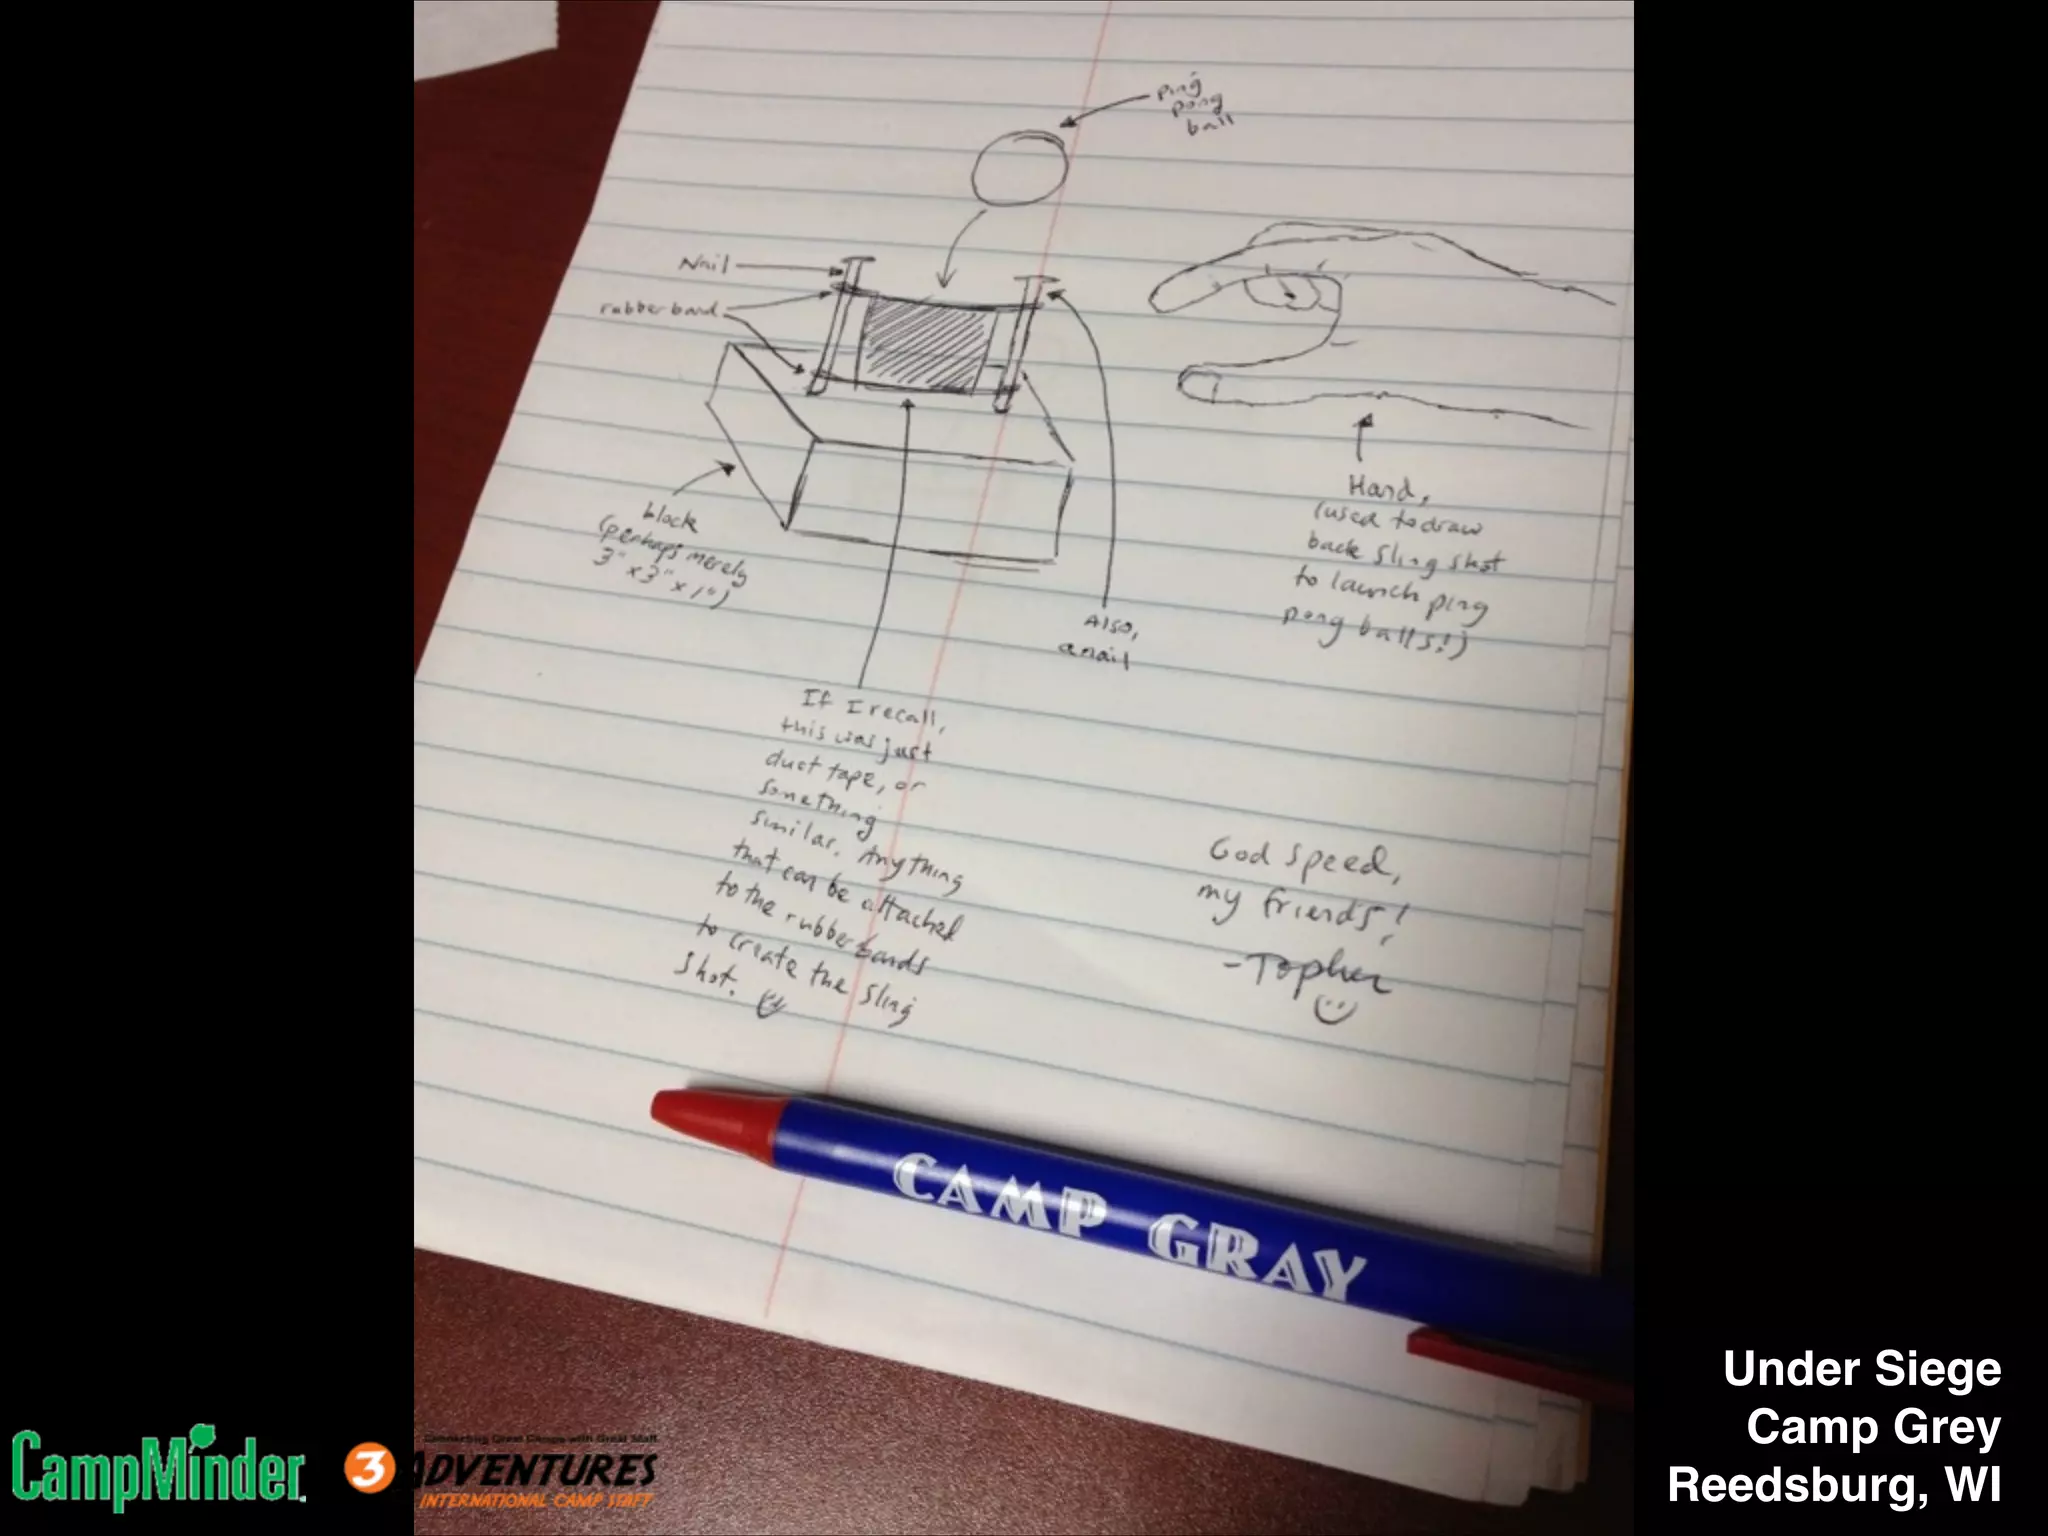 ping
pong
ball
Nail
rubberband
block
(perhaps merely
3" x 3" x 1")
Hand,
(used to draw
back sling shot
to launch ping
pong balls!)
Also,
a nail
If I recall,
this was just
duct tape, or
something
similar. Anything
that can be attached
to the rubber bands
to create the sling
shot.
God speed,
my friends!
-Topher
CAMP GRAY
Under Siege
Camp Grey
Reedsburg, WI
CampMinder
Connecting Great Camps with Great Staff
3 ADVENTURES
INTERNATIONAL CAMP STAFF